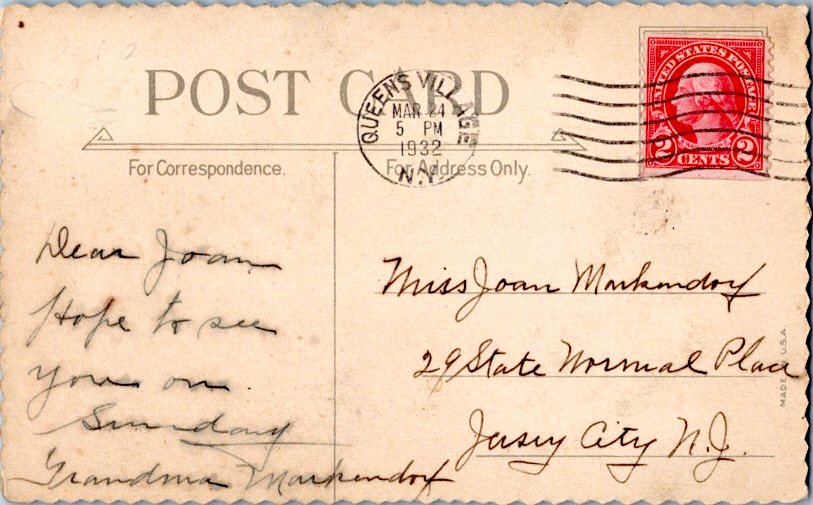 POST CARD
For Correspondence.
For Address Only.
QUEENS VILLAGE
MAR 24
5 PM
1932
N.Y.
UNITED STATES POSTAGE
2 CENTS 2
Dear Joan,
Hope to see
you on
Sunday
Grandma Markendorf
Miss Joan Markendorf
29 State Normal Place
Jersey City N.J.
MADE IN U.S.A.